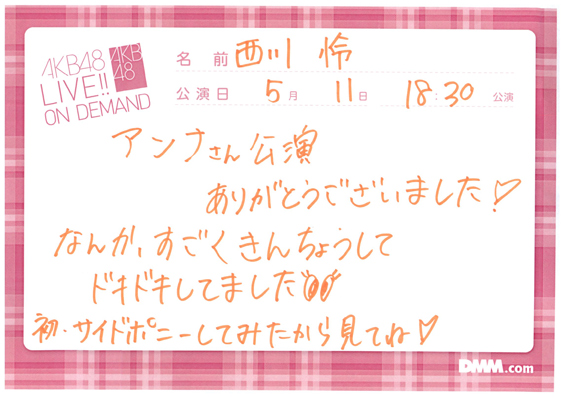 AKB48
LIVE!!
ON DEMAND
AKB
48
名前 西川 怜
公演日 5月 11日 18:30 公演
アンナさん公演
ありがとうございました!♡
なんか、すごくきんちょうして
ドキドキしてました
初・サイドポニーしてみたから見てね♡
DMM.com